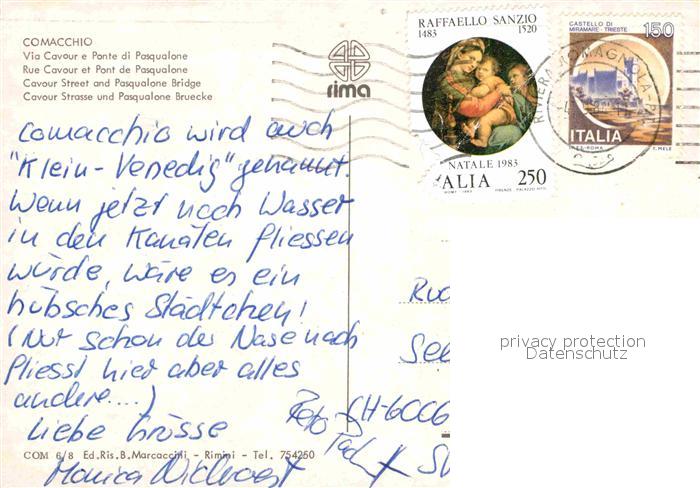 COMACCHIO
Via Cavour e Ponte di Pasqualone
Rue Cavour et Pont de Pasqualone
Cavour Street and Pasqualone Bridge
Cavour Strasse und Pasqualone Bruecke
rima
RAFFAELLO SANZIO
1483 1520
NATALE 1983
ALIA 250
CASTELLO DI
MIRAMARE - TRIESTE
150
ITALIA
I.P.Z.S. - ROMA E. MELE
Comacchio wird auch
"Klein-Venedig" genannt.
Wenn jetzt noch Wasser
in den Kanälen fliessen
würde, wäre es ein
hübsches Städtchen!
(Nur schon der Nase nach
fliesst hier aber alles
andere....)
Liebe Grüsse
Monica
COM 6/8 Ed. Ris. B. Marcaccini - Rimini - Tel. 754250
See
CH-6006
privacy protection
Datenschutz